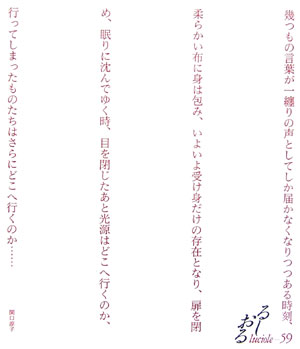 幾つもの言葉が一纏りの声としてしか届かなくなりつつある時刻、
柔らかい布に身は包み、いよいよ受け身だけの存在となり、扉を閉
め、眠りに沈んでゆく時、目を閉じたあと光源はどこへ行くのか、
行ってしまったものたちはさらにどこへ行くのか……
関口涼子
るしおる
luciole 59